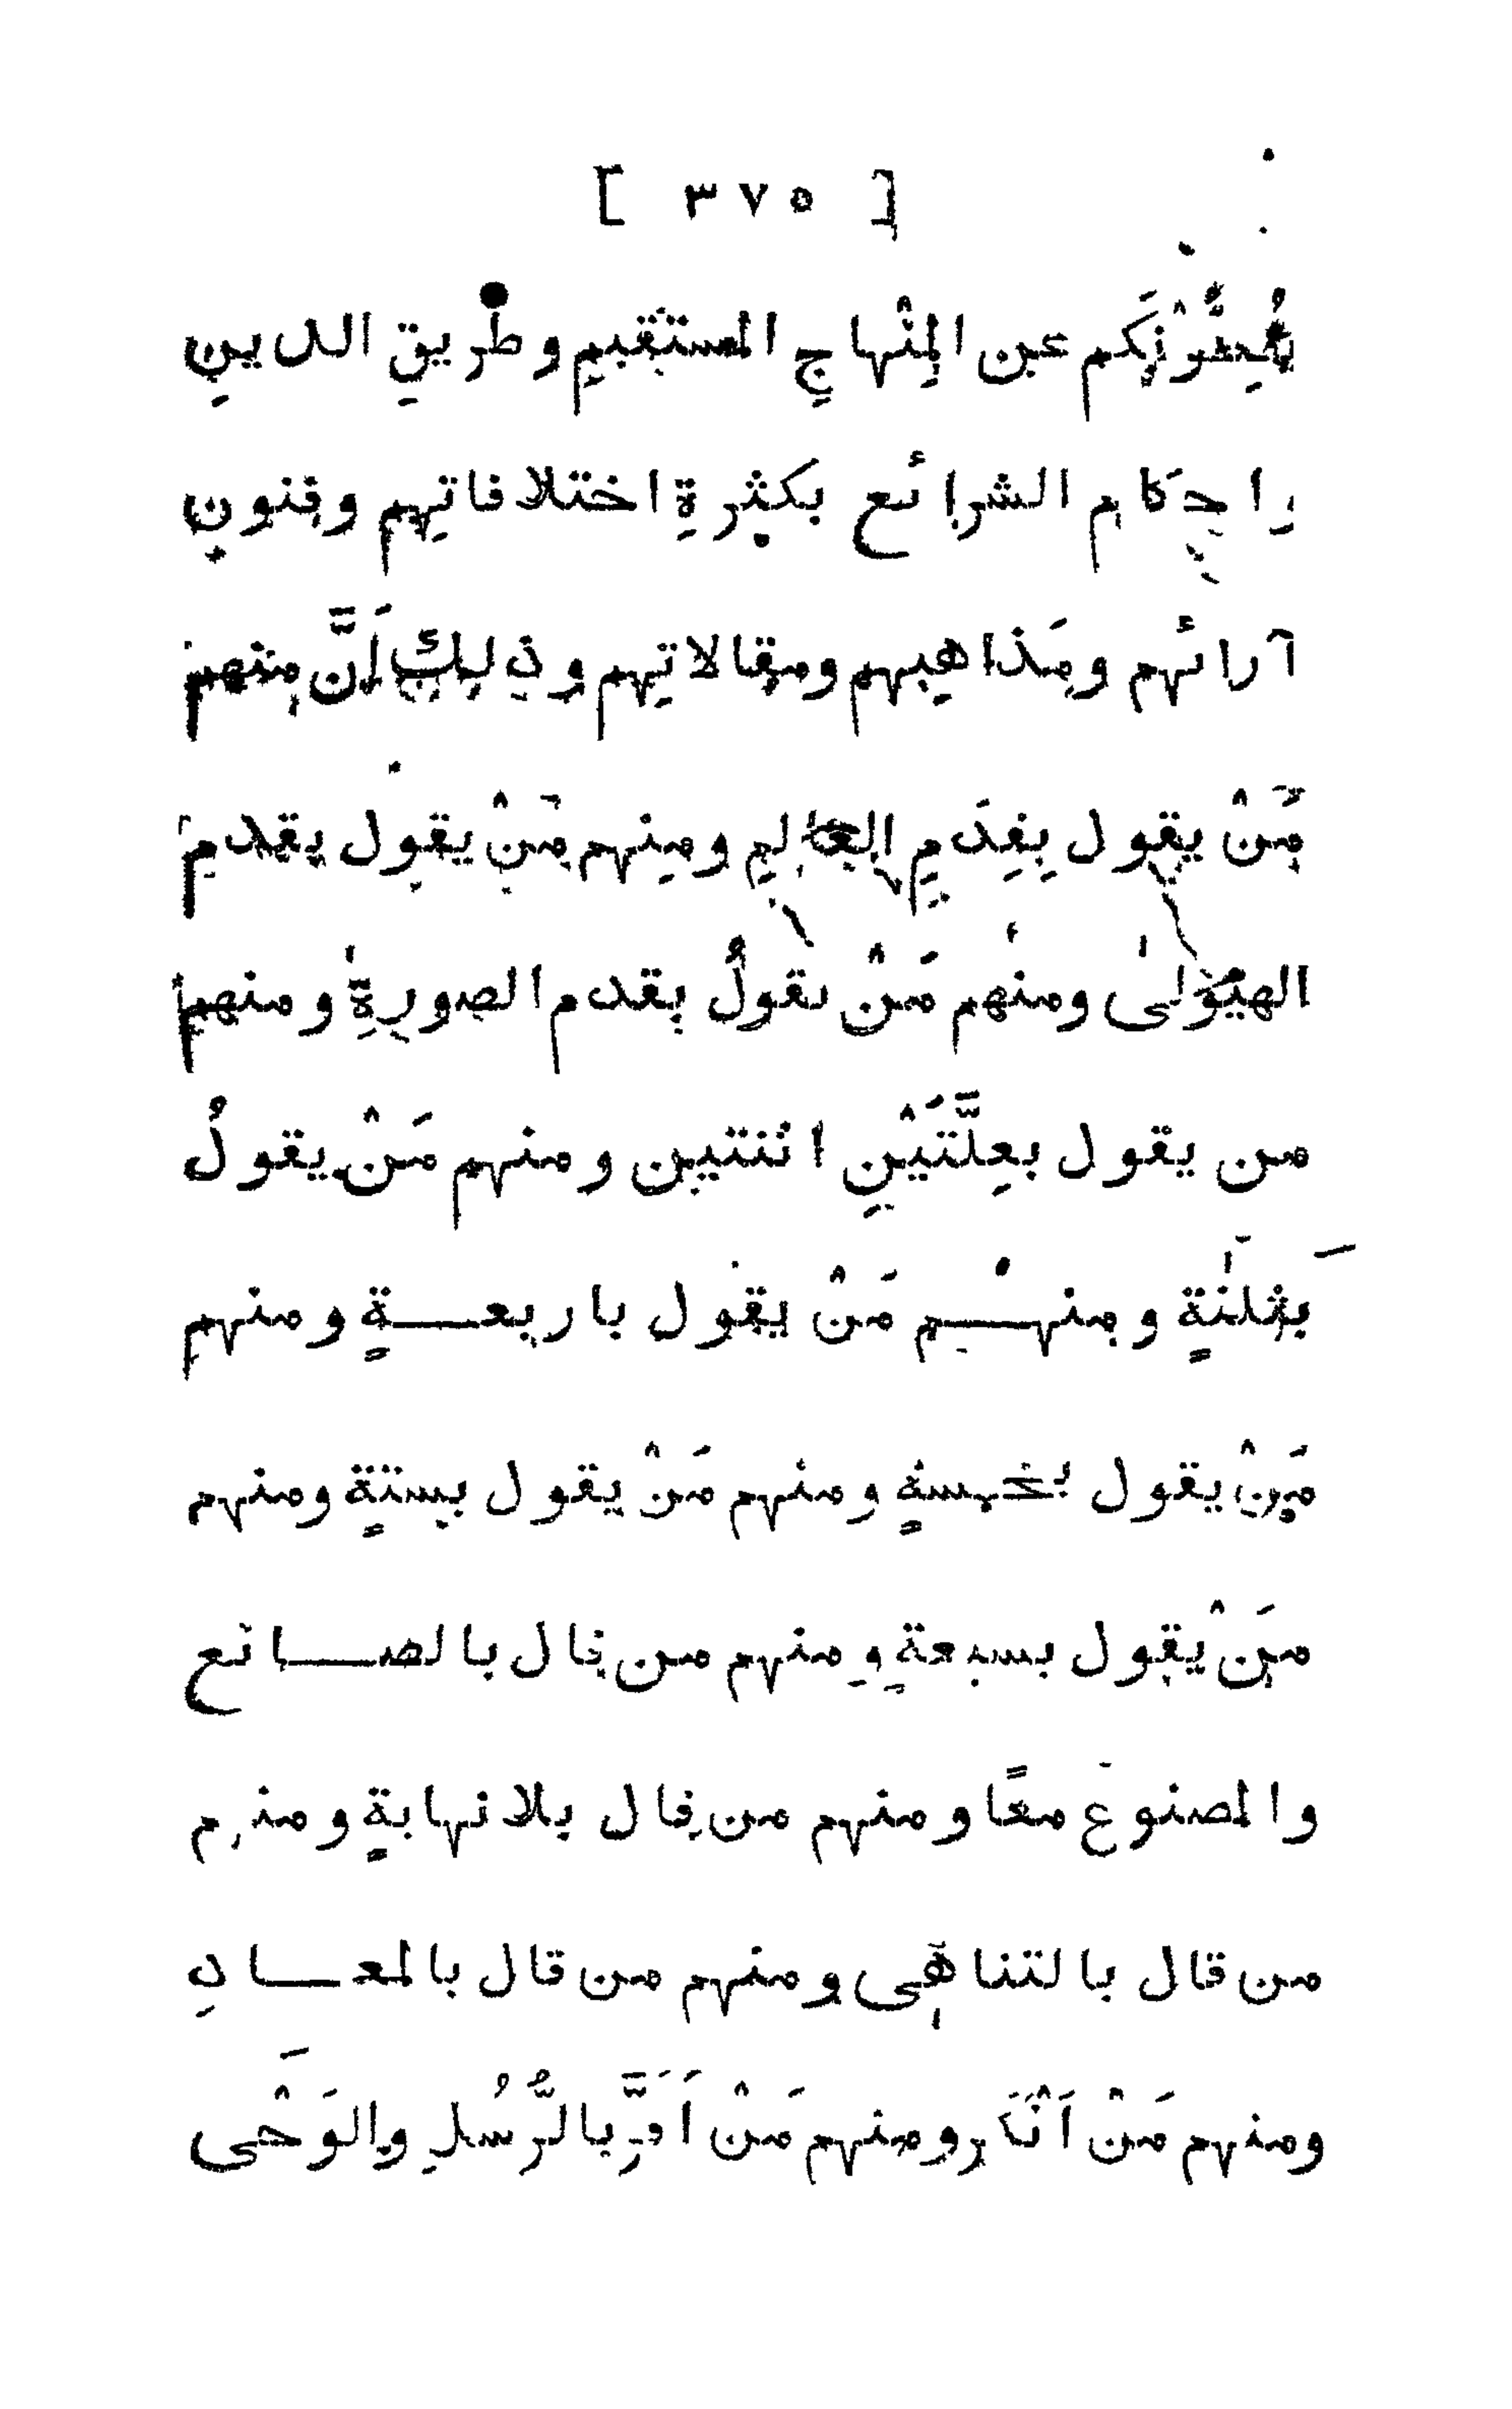 [ ٣٧٥ ]
يُضِلُّوْنَكم عن المِنْهاجِ المستقيمِ وطريقِ الدينِ
واحكام الشرائع بكثرةِ اختلافاتِهم وفنون
آرائهم ومَذاهِبهم ومقالاتِهم وذلِك اَنَّ منهم
مَنْ يقول بِقِدَمِ العالمِ ومِنهم مَنْ يقول بقدم
الهيُوْلىٰ ومنهم مَنْ يقولُ بقدم الصورةِ ومنهم
من يقول بعِلَّتَيْنِ اثنتين ومنهم مَنْ يقولُ
بثلٰثةٍ ومنهــم مَنْ يقول باربعــةٍ ومنهم
مَنْ يقول بخمسةٍ ومنهم مَنْ يقول بستةٍ ومنهم
مَنْ يقول بسبعةٍ ومنهم من قال بالصــانع
والمصنوع معًا ومنهم من قال بلا نهايةٍ ومنهم
من قال بالتناهى ومنهم من قال بالمعــادِ
ومنهم مَنْ اَنْكَر ومنهم مَنْ اَقَرَّ بالرُّسُلِ والوَحْى